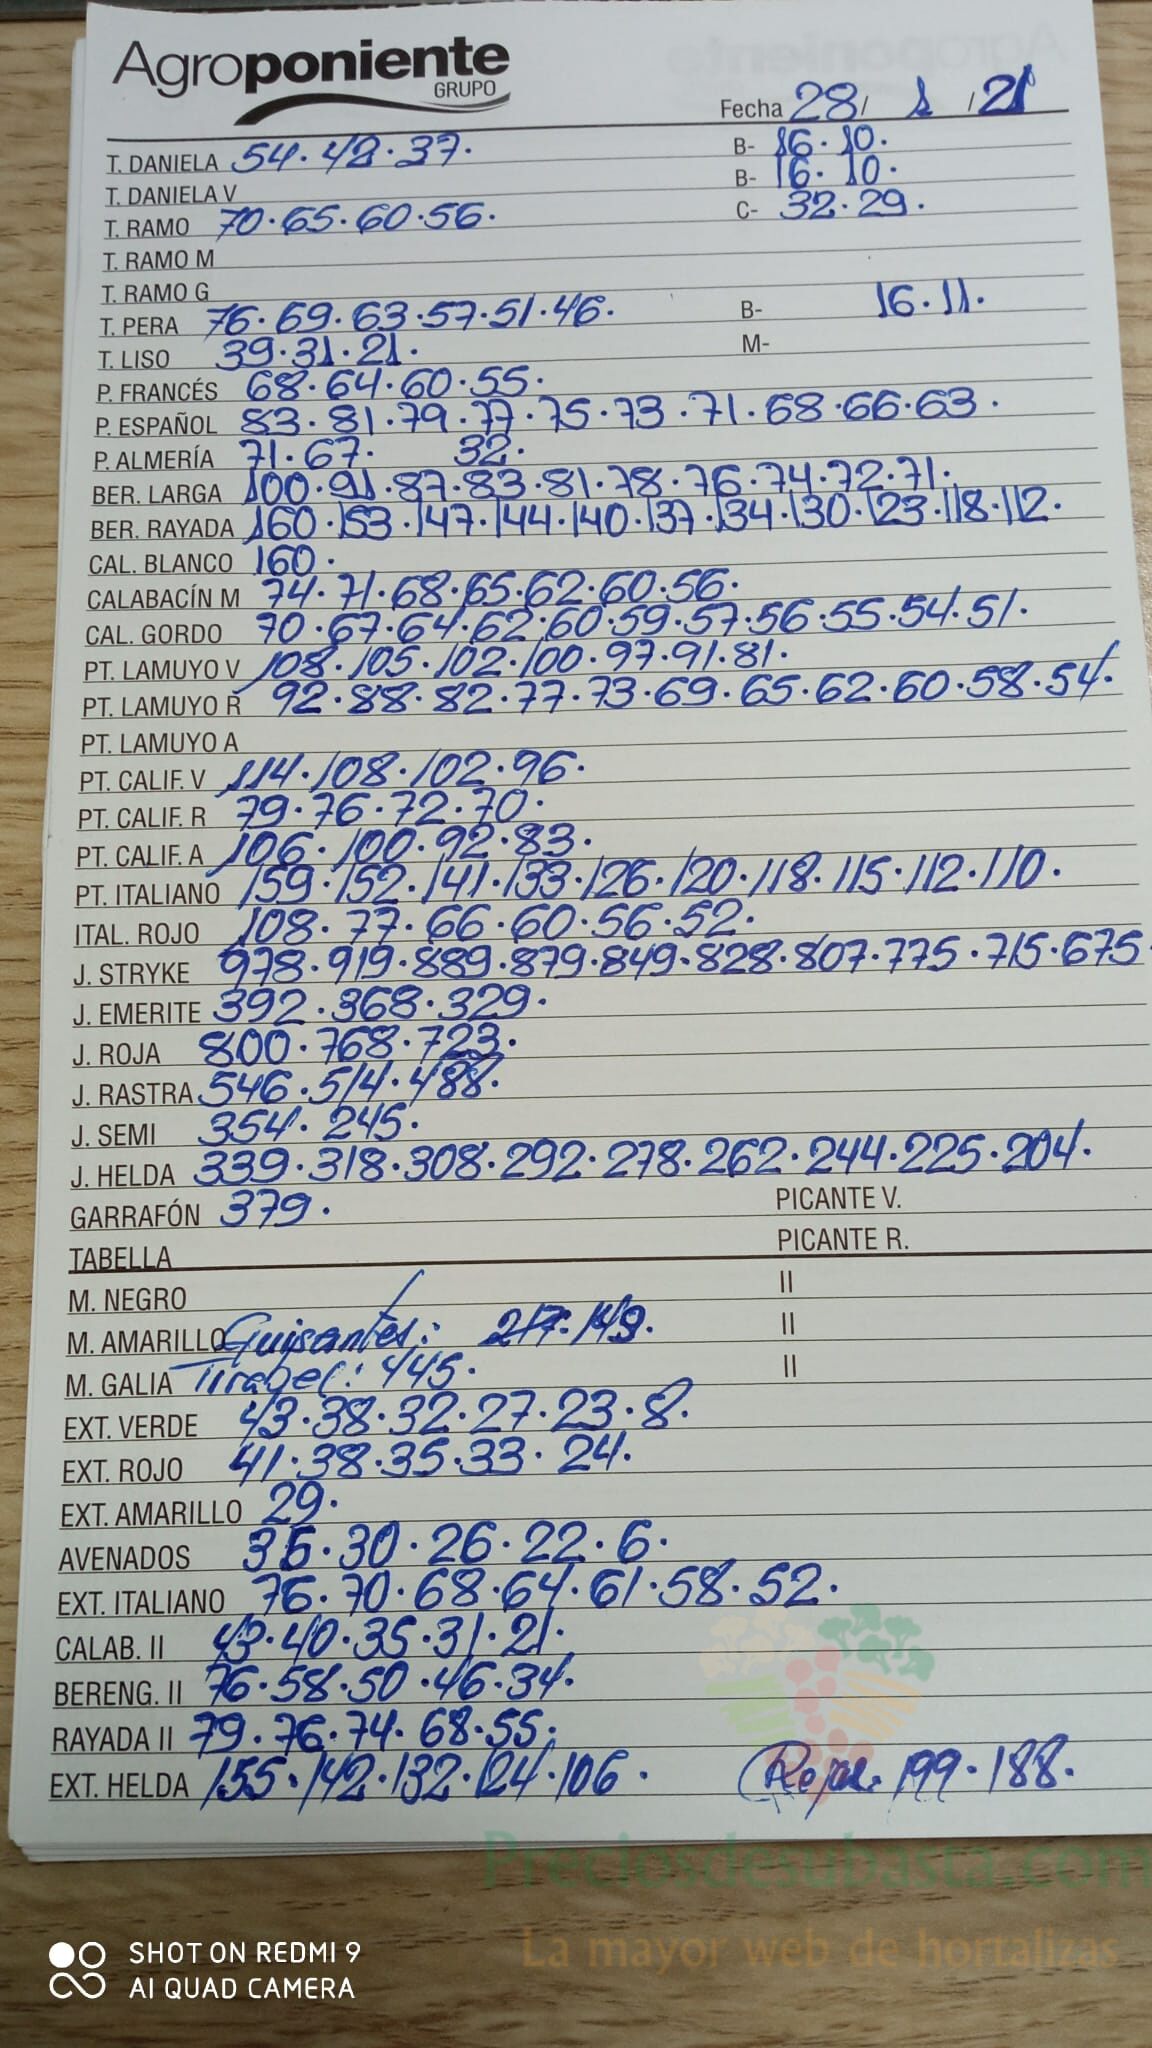 Agroponiente
GRUPO
Fecha 28/ 1 /21
T. DANIELA 54. 48. 37. B- 16. 10.
T. DANIELA V B- 16. 10.
T. RAMO 70. 65. 60. 56. C- 32. 29.
T. RAMO M
T. RAMO G
T. PERA 76. 69. 63. 57. 51. 46. B- 16. 11.
T. LISO 39. 31. 21. M-
P. FRANCÉS 68. 64. 60. 55.
P. ESPAÑOL 83. 81. 79. 77. 75. 73. 71. 68. 66. 63.
P. ALMERÍA 71. 67. 32.
BER. LARGA 100. 91. 87. 83. 81. 78. 76. 74. 72. 71.
BER. RAYADA 160. 153. 147. 144. 140. 137. 134. 130. 123. 118. 112.
CAL. BLANCO 160.
CALABACÍN M 74. 71. 68. 65. 62. 60. 56.
CAL. GORDO 70. 67. 64. 62. 60. 59. 57. 56. 55. 54. 51.
PT. LAMUYO V 108. 105. 102. 100. 97. 91. 81.
PT. LAMUYO R 92. 88. 82. 77. 73. 69. 65. 62. 60. 58. 54.
PT. LAMUYO A
PT. CALIF. V 114. 108. 102. 96.
PT. CALIF. R 79. 76. 72. 70.
PT. CALIF. A 106. 100. 92. 83.
PT. ITALIANO 159. 152. 141. 133. 126. 120. 118. 115. 112. 110.
ITAL. ROJO 108. 77. 66. 60. 56. 52.
J. STRYKE 978. 919. 889. 879. 849. 828. 807. 775. 715. 675
J. EMERITE 392. 368. 329.
J. ROJA 800. 768. 723.
J. RASTRA 546. 514. 488.
J. SEMI 354. 245.
J. HELDA 339. 318. 308. 292. 278. 262. 244. 225. 204.
GARRAFÓN 379. PICANTE V.
TABELLA PICANTE R.
M. NEGRO II
M. AMARILLO Guisantes: 217. 149. II
M. GALIA Tirabec: 445. II
EXT. VERDE 43. 38. 32. 27. 23. 8.
EXT. ROJO 41. 38. 35. 33. 24.
EXT. AMARILLO 29.
AVENADOS 36. 30. 26. 22. 6.
EXT. ITALIANO 76. 70. 68. 64. 61. 58. 52.
CALAB. II 43. 40. 35. 31. 21.
BERENG. II 76. 58. 50. 46. 34.
RAYADA II 79. 76. 74. 68. 55.
EXT. HELDA 155. 142. 132. 124. 106. 199. 188.
Preciosdesubasta.com
La mayor web de hortalizas
SHOT ON REDMI 9
AI QUAD CAMERA